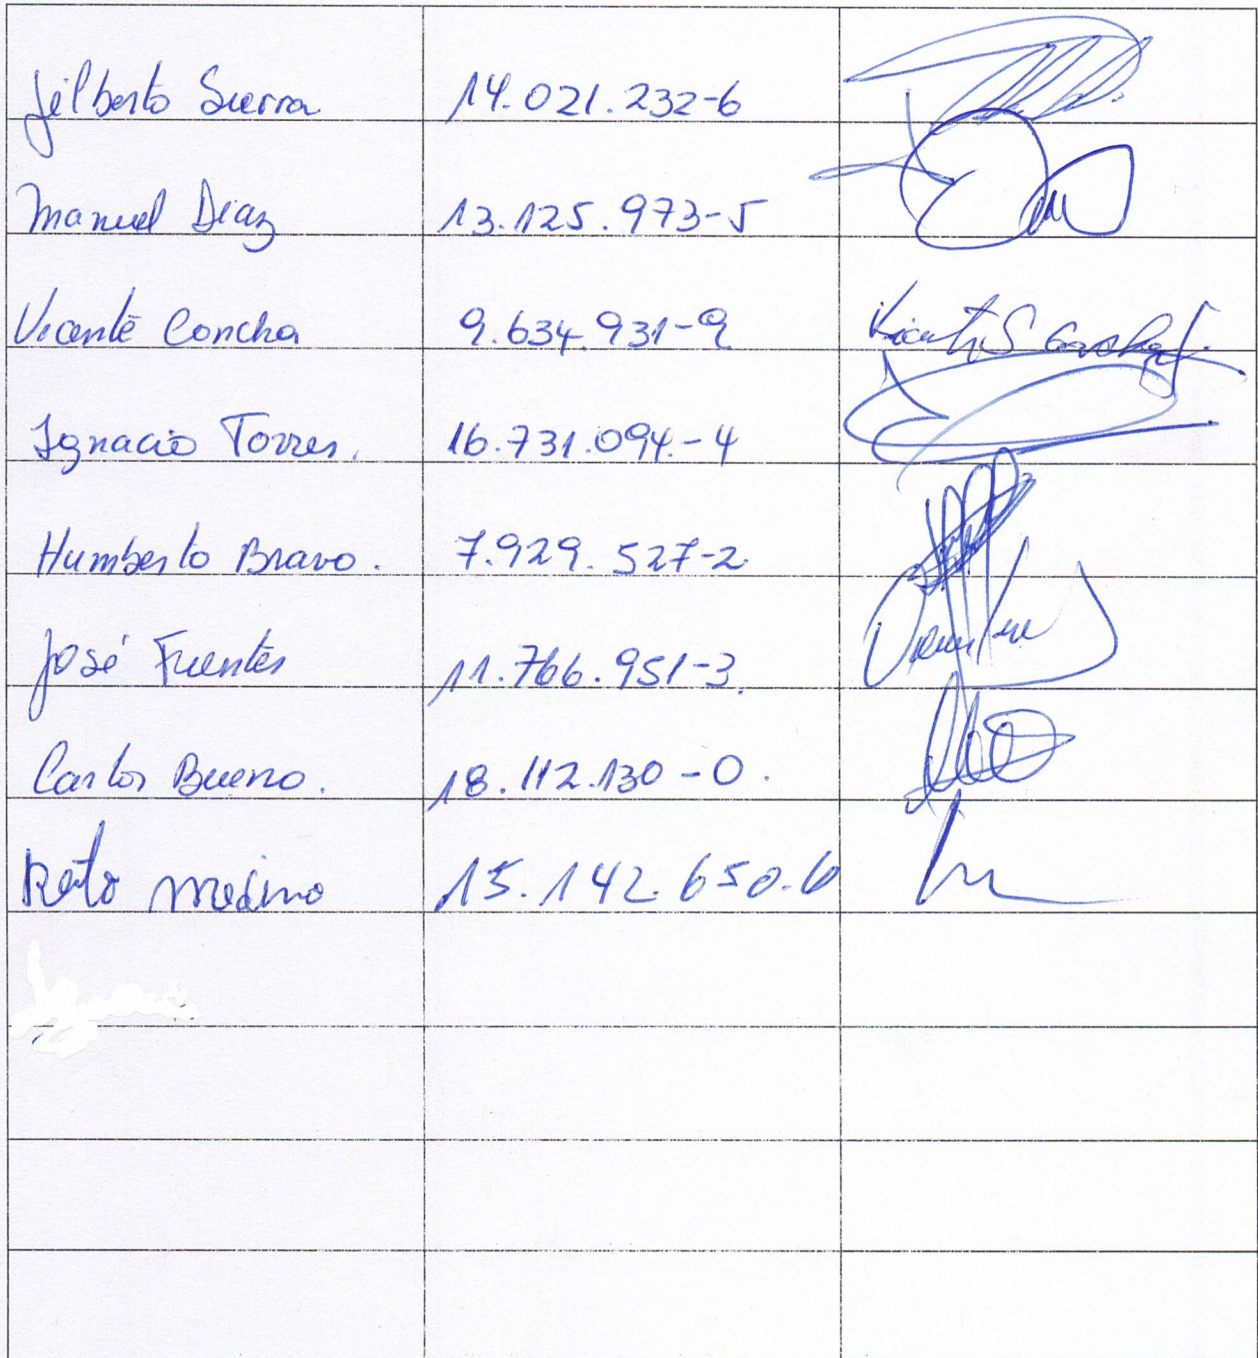 Jilberto Sierra 14.021.232-6
Manuel Diaz 13.125.973-5
Vicente Concha 9.634.931-9
Ignacio Torres. 16.731.094-4
Humberto Bravo. 7.929.527-2
José Fuentes 11.766.951-3
Carlos Bueno. 18.112.130-0.
15.142.650-6